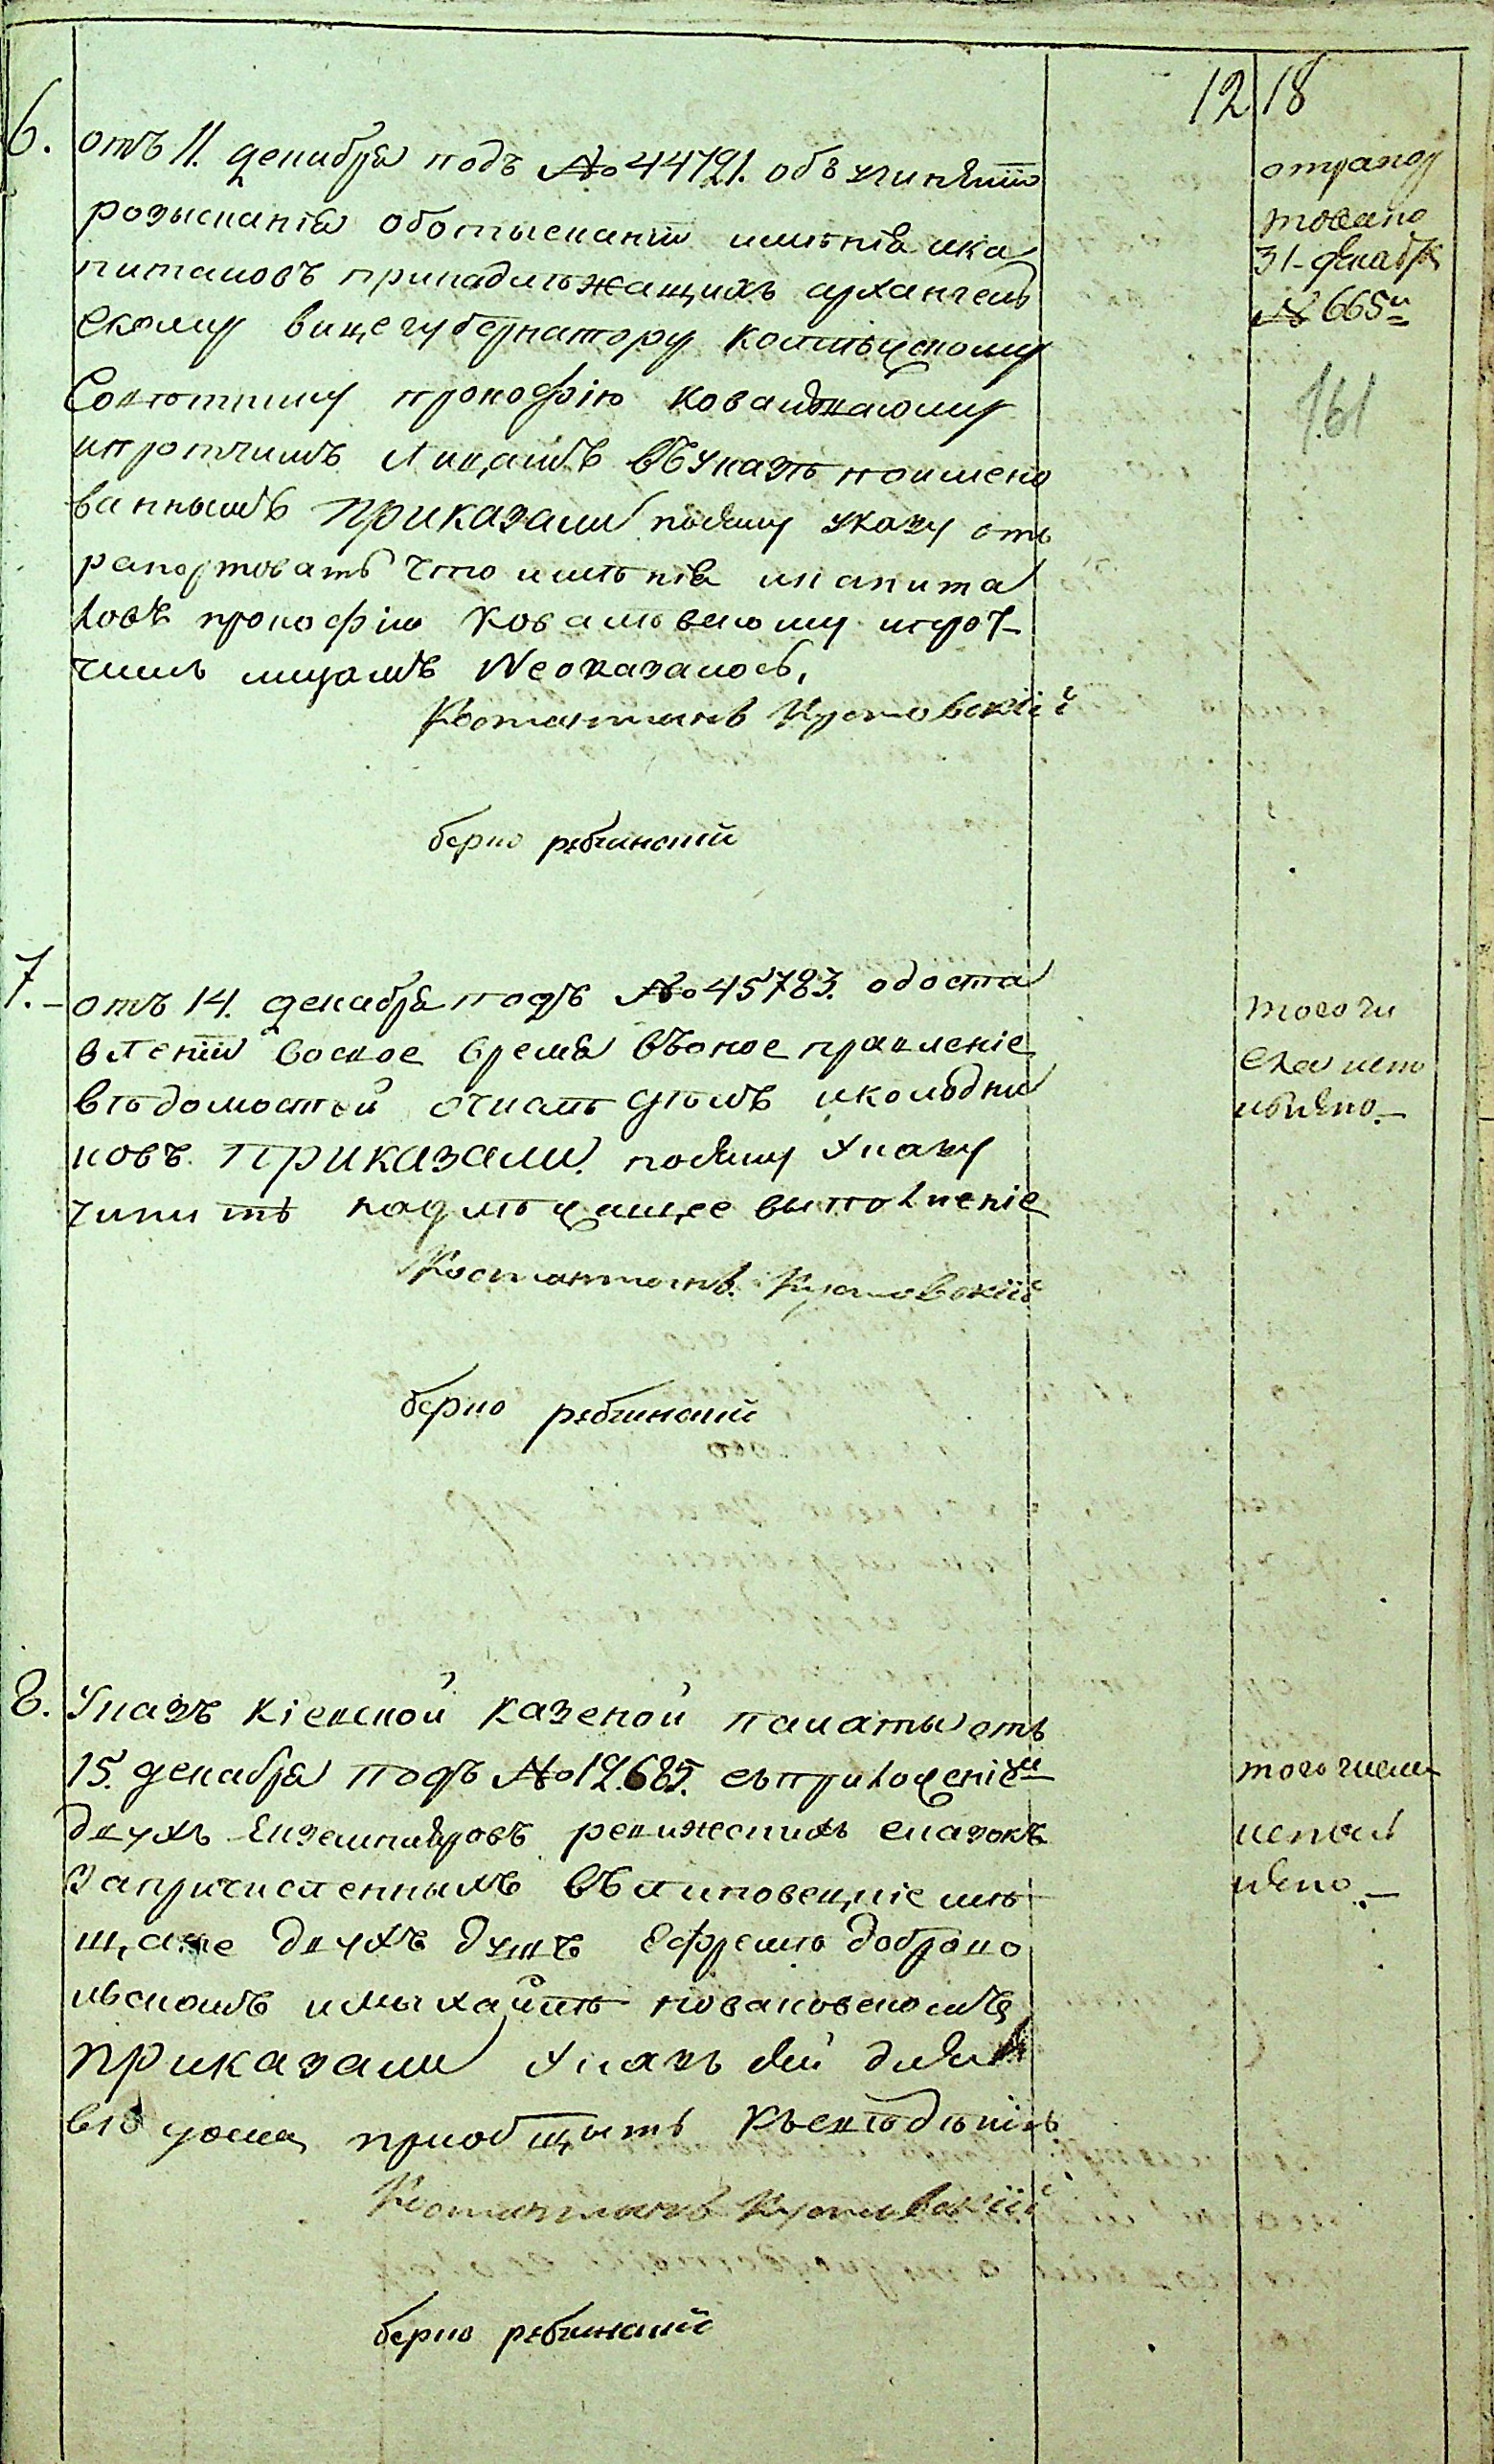 12 18
6. отъ 11. декабря подъ № 44721. объ учинении
розыскания оботыскании имѣния ика
питаловъ принадлѣжащихъ архангель
скому вице губернатору коллѣжскому
Совѣтнику прокофію ковалевскому
ипротчимъ лицамъ въуказѣ поимено
ваннымъ приказали посему указу отъ
рапортовать что имѣния икапита
ловъ прокофію Ковалѣвскому ипрот
чимъ лицамъ Неоказалось.
Костантинъ Крыловский
берко рабинский
отрапор
товано
31 декабря
№ 665м
161
7. отъ 14. декабря подъ № 45783. одоста
влении восвое время въоное правление
вѣдомостей очислѣ дѣлъ иколодни
ковъ приказали посему указу
чинить надлѣжащее выполнение
Костантинъ
берко рабинский
того чи
сла испо
лнѣно
8. Указъ кіевской казеной палаты отъ
15. декабря подъ № 19.685. съприложениемъ
двухъ екземпляровъ ревижскихъ сказокъ
запричисленныхъ въ мѣ
щане двухъ душъ Ефрема добраво
льскомъ имыхайлѣ
приказали указъ сей
приобщить къ
Костантинъ
берко рабинский
того числа
испол
нѣно